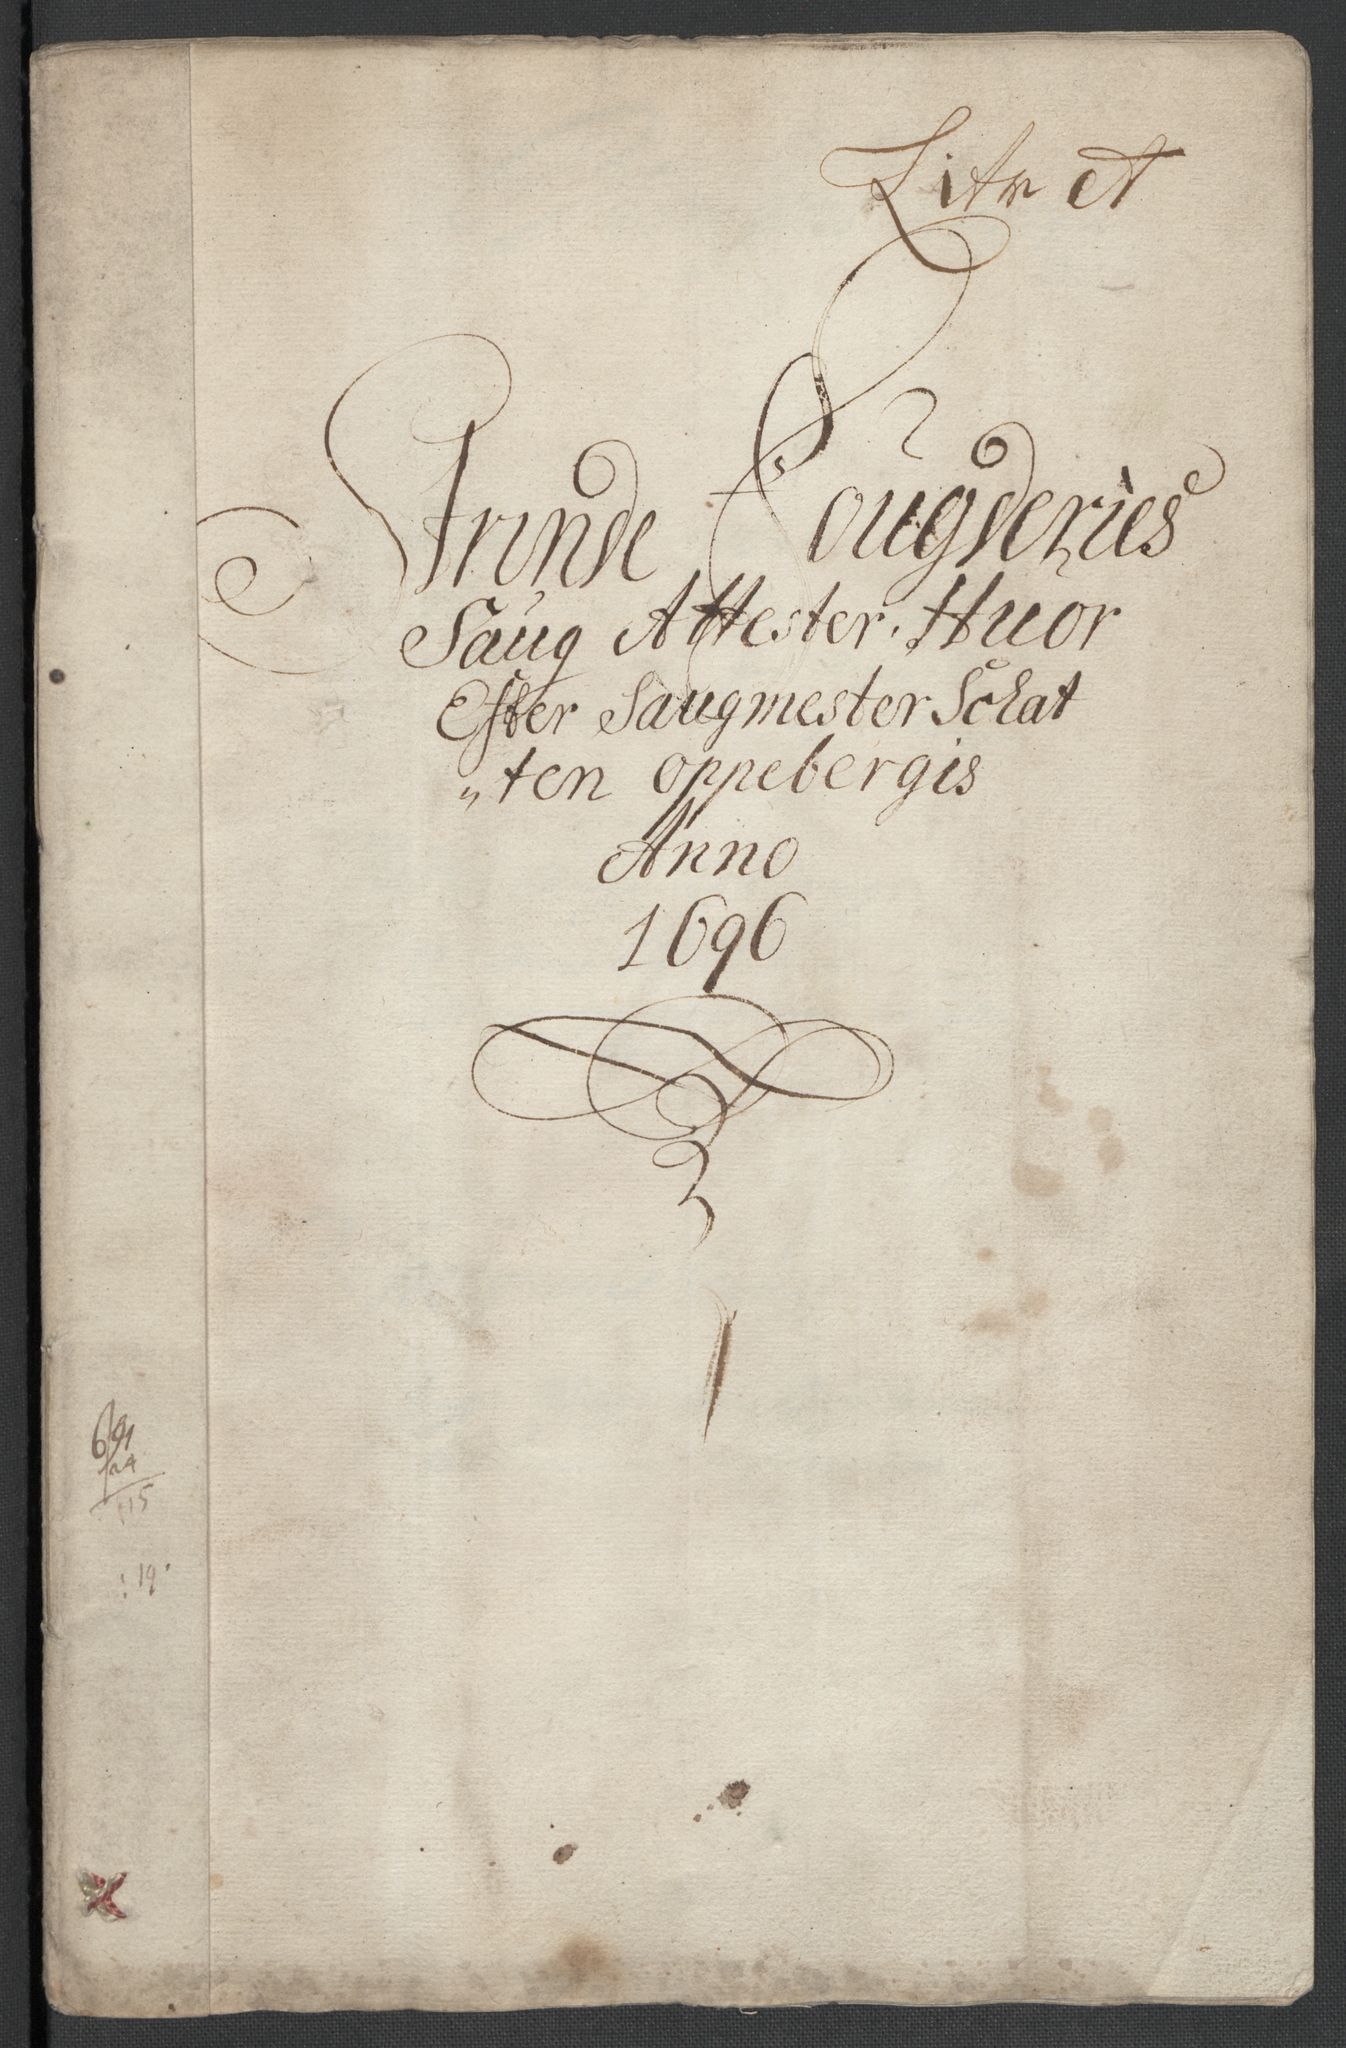 Litr A
Strinde Fougderies
Saug Attester, Huor
Efter Saugmester Schat
„ten oppebergis
Anno
1696
691
24
115
: 19 ·